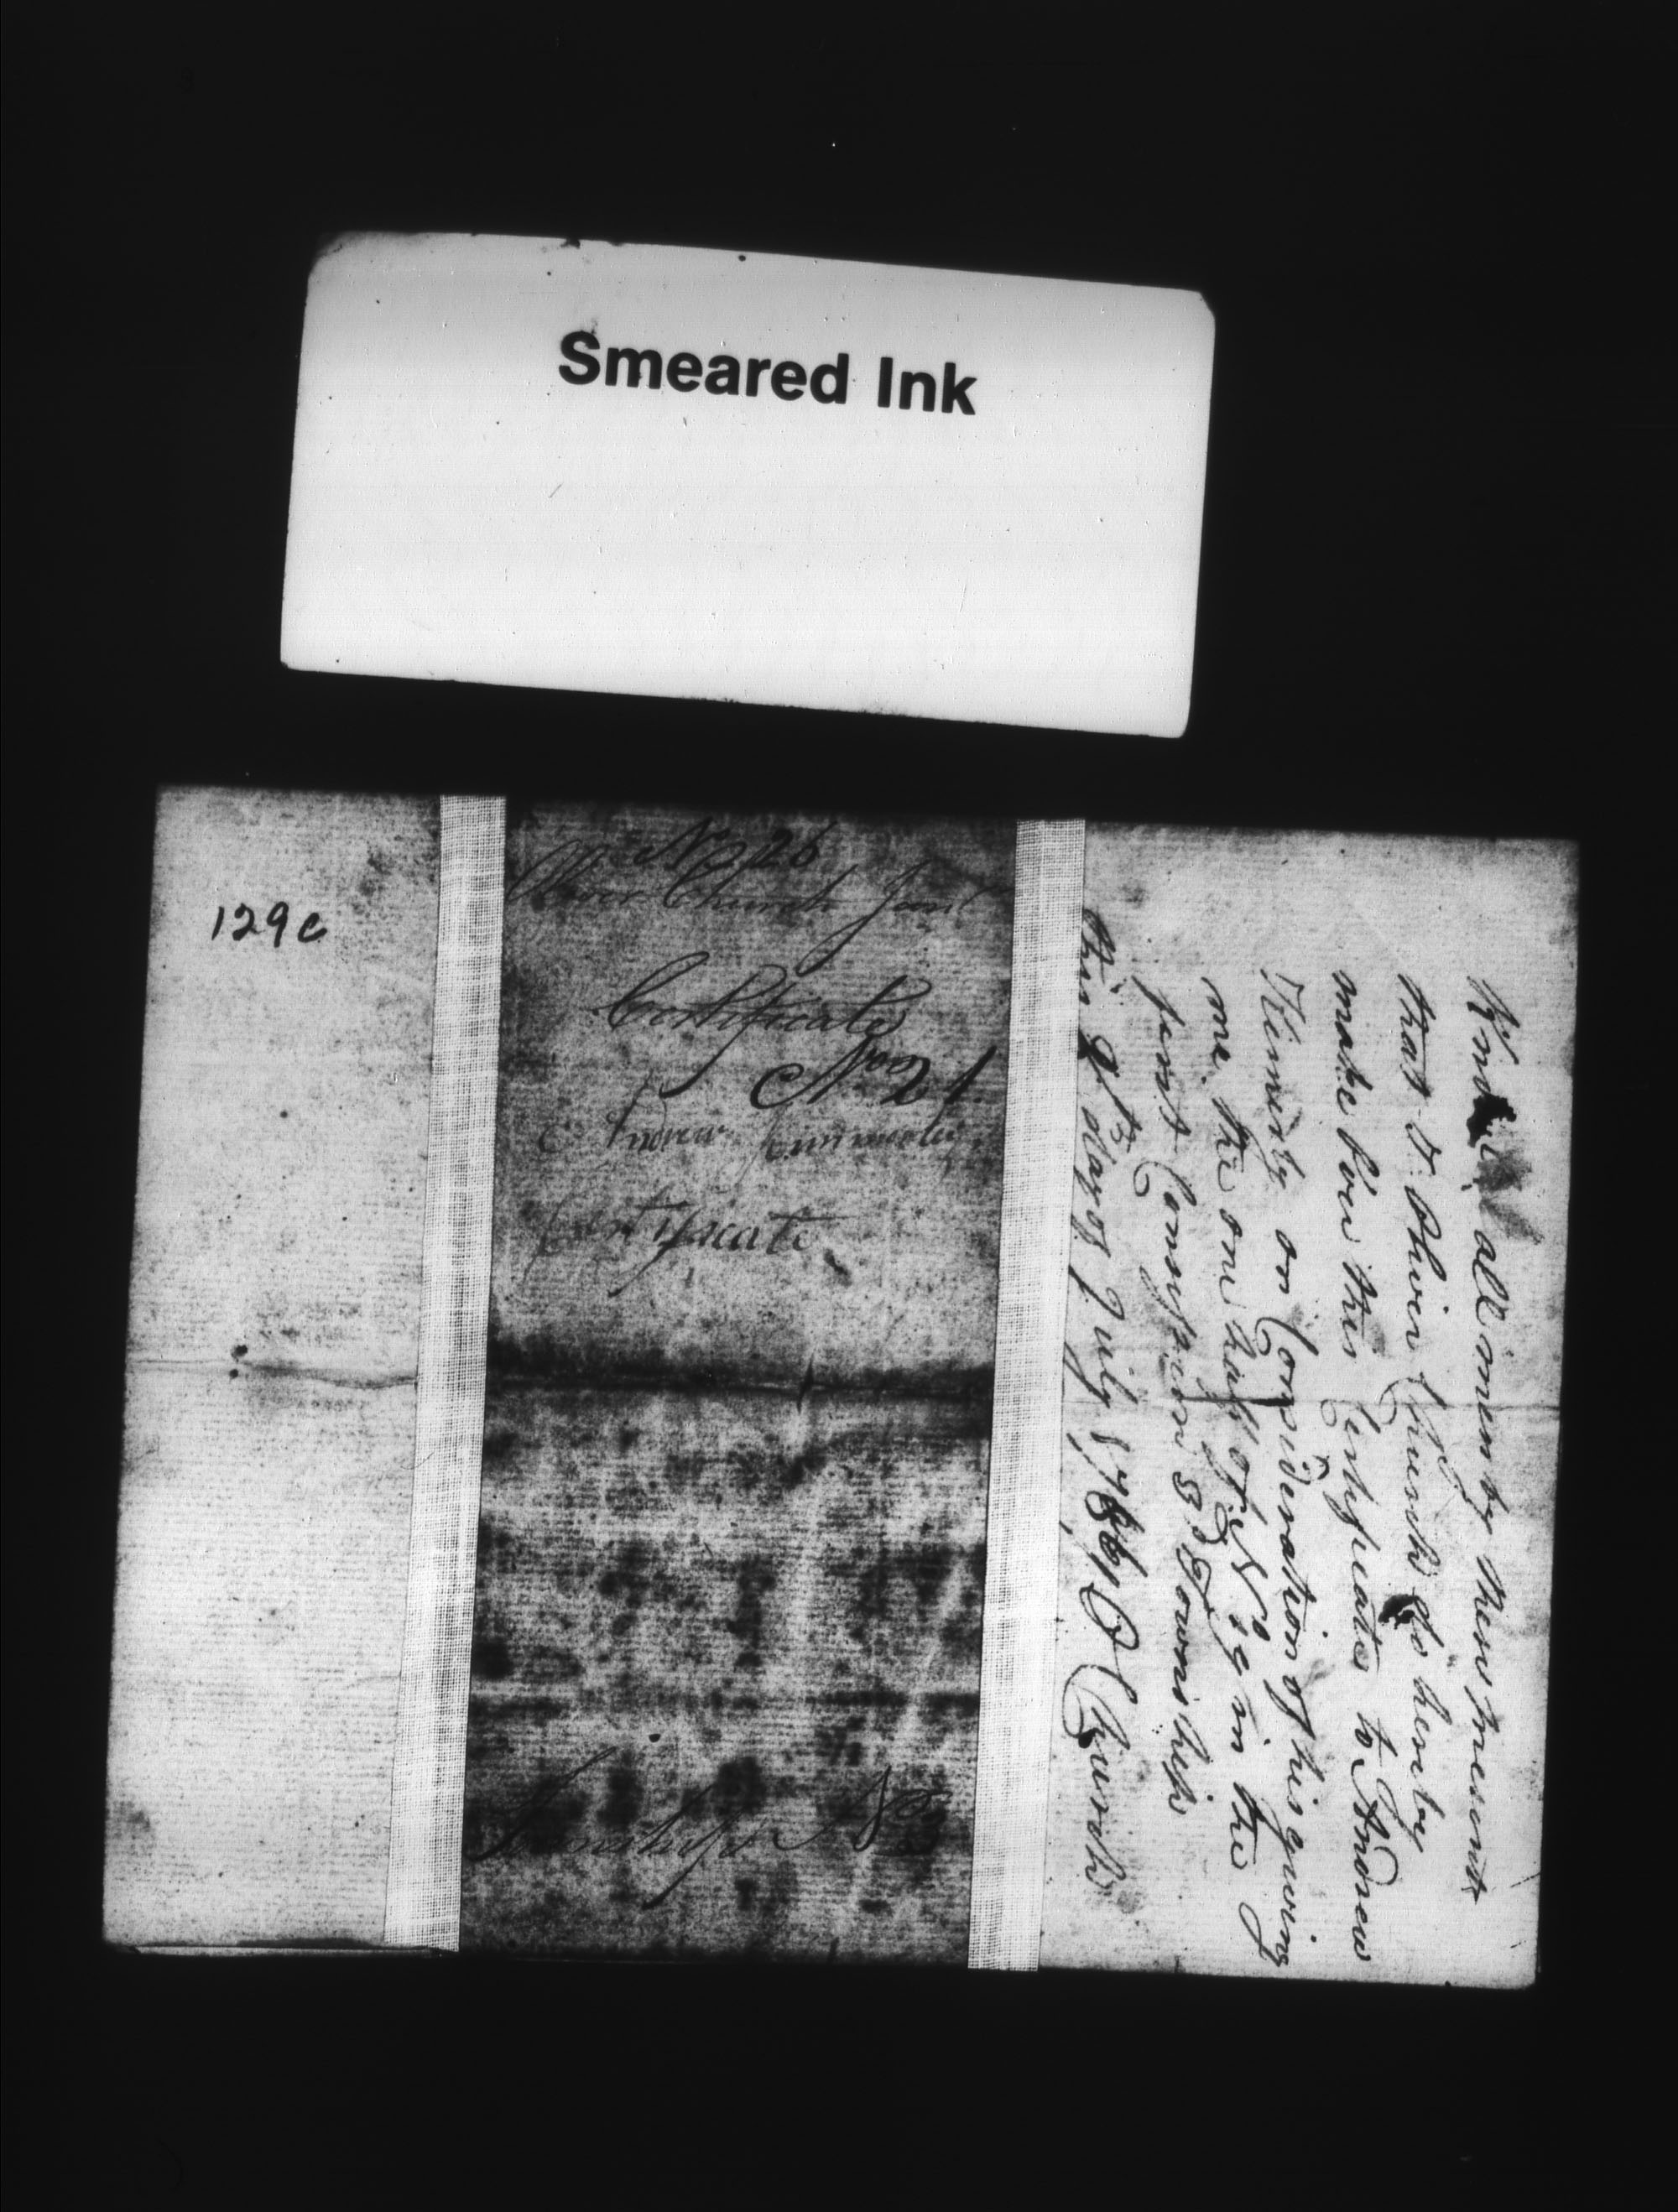 Smeared Ink
129c
No 26
Oliver Church Jun
Certificate
No 21
Andrew
Certyficate
Township No 3
all men by these presents
that I Oliver Church do herby
make over this Certificate to Andrew
on Consideration of his giving
me the one half of No 19 in the
first Consession 3d Township
this 9th day of July 1786 O Church